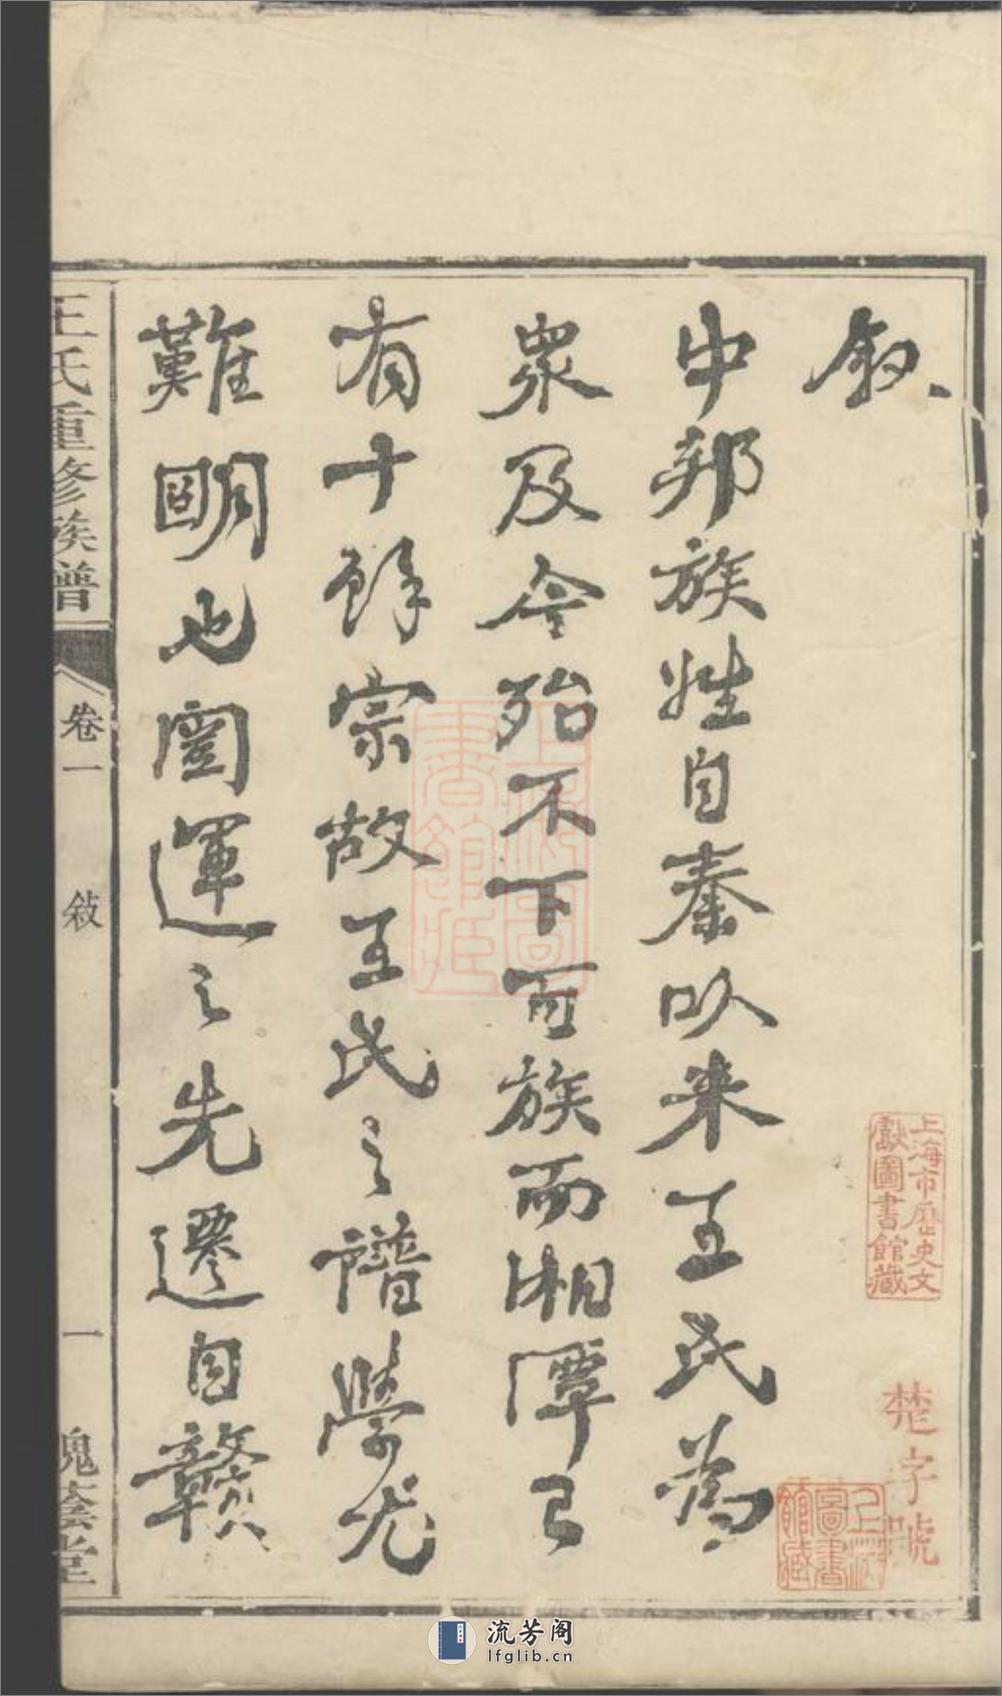 敘
中邦族姓自秦以来王氏為
衆及今殆不下百族而湘潭已
有十餘宗故王氏之譜學尤
難明也闓運之先遷自贛
王氏重修族譜
卷一
敍
一
槐蔭堂
上海市歷史文
獻圖書館藏
楚字號
上海
圖書
館藏
上海圖
書館藏
流芳阁
lfglib.cn